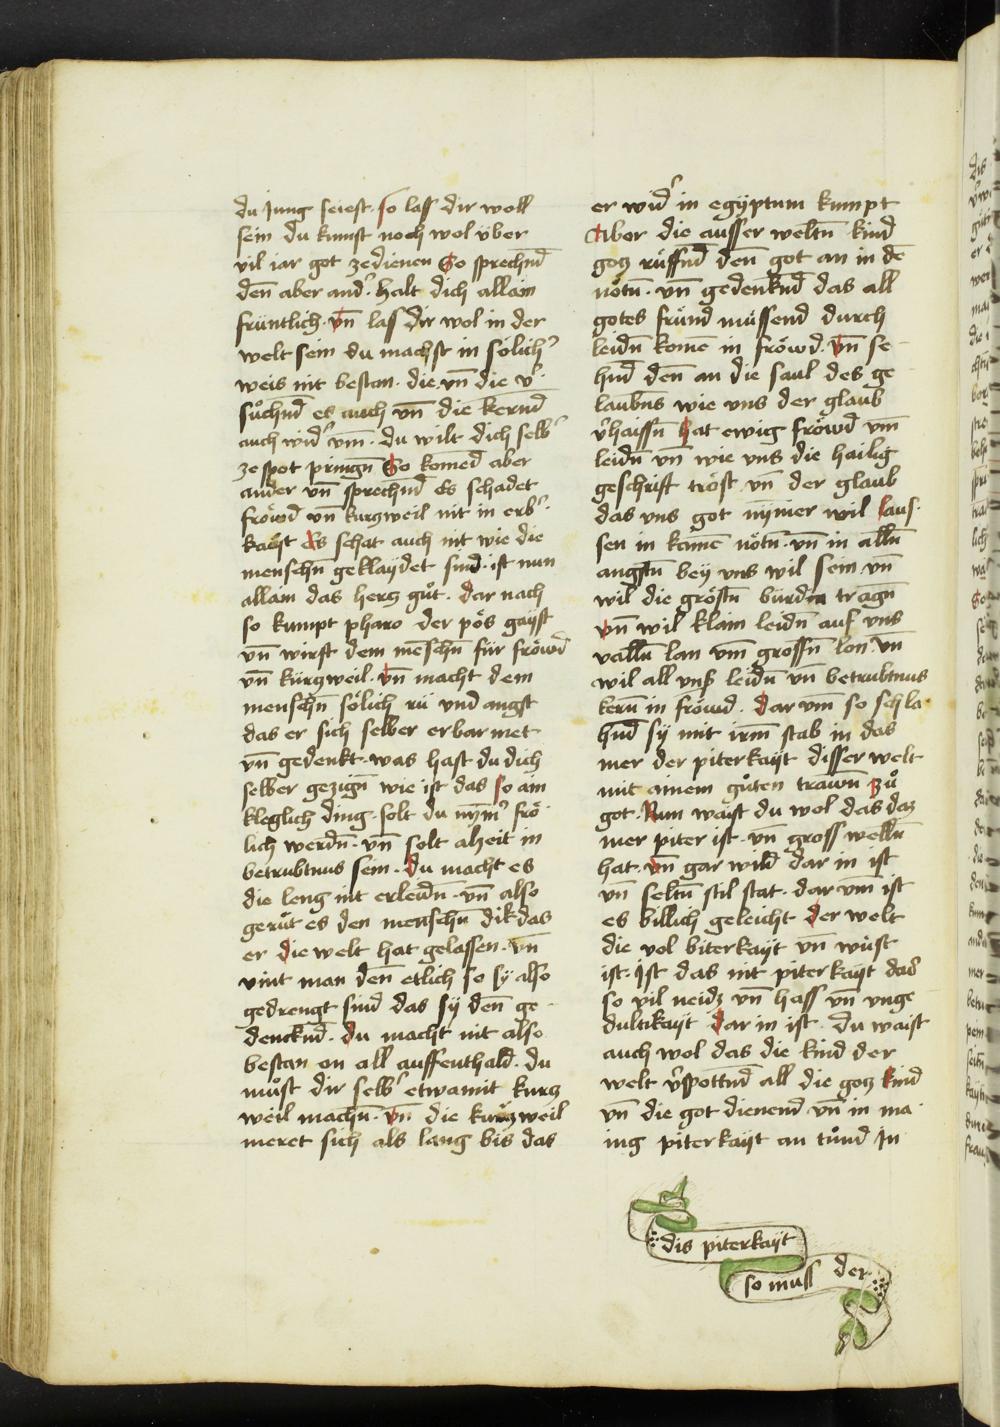 du jung seiest. so lass dir woll
sein du kumst noch wol über
vil iar got zedienen So sprechnd̄
den̄ aber and᾽. halt dich allain
früntlich. vn̄ lass dir wol in der
welt sein du machst in sölich᾽
weis nit bestan. die vn̄ die v᾽
sůchnd̄ es auch vn̄ die kernd̄
auch wid᾽ vm̄. du wilt dich selb᾽
ze spot pringn̄ So komēd aber
ander vn̄ sprechnd̄ Es schadet
fröwd vn̄ kurgweil nit in erb᾽.
kaÿt Es schat auch nit wie die
menschn̄ geklaÿdet sind. ist nun
allain das herg gůt. dar nach
so kumpt pharo der pös gaÿst
vn̄ wirft dem menschn̄ für fröwd̄
vn̄ kürgweil. vn̄ macht dem
menschn̄ sölich rü vnd angst
das er sich selber erbarmet
vn̄ gedenkt. was hast du dich
selber gezign̄ wie ist das so ain
kleglich ding. solt du nÿm̄᾽ frö
lich werdn̄. vn̄ solt alzeit in
betrubtnus sein. du macht es
die leng nit erleidn̄. vn̄ also
gerüt es den menschn̄ dik das
er die welt hat gelassen. vn̄
vint man den̄ etlich so sÿ also
gedrengt sind das sÿ den̄ ge
dencknd̄. du macht nit also
bestan on all auffenthald. du
můst dir selb᾽ etwamit kurg
weil machn̄. vn̄ die kurgweil
meret sich als lang bis das
er wid᾽ in egÿptum kumpt
Aber die ausser weltn̄ kind
gog rüffnd̄ den̄ got an in dē
nötn̄. vn̄ gedenknd̄ das all
gotes fründ müssend durch
leidn̄ komē in fröwd. vn̄ se
hnd̄ den̄ an die saul des ge
laubns wie vns der glaub
v᾽haissn̄ hat ewig fröwd vm̄
leidn̄ vn̄ wie vns die hailig
geschrift tröst vn̄ der glaub
das vns got nÿmer wil laus
sen in kainē nötn̄. vn̄ in alln̄
angstn̄ beÿ vns wil sein vn̄
wil die gröstn̄ bürden tragn̄
vn̄ wil klain leidn̄ auf vns
valln̄ lan vm̄ grossn̄ lon vn̄
wil all vnß leidn̄ vn̄ betrubtnus
kern̄ in fröwd. dar vm̄ so schla
hnd̄ sÿ mit irm̄ stab in das
mer der piterkaÿt disser welt
mit ainem gůten trawn̄ zů
got. Nun waist du wol das daz
mer piter ist. vn̄ gross welln̄
hat. vn̄ gar wild dar in ist
vn̄ seltn̄ stil stat. dar vm̄ ist
es billich geleicht der welt
die vol biterkaÿt vn̄ wüst
ist. Ist das nit piterkaÿt da᾽
so vil neidz vn̄ hass vn̄ vnge
dultikaÿt dar in ist. du waist
auch wol das die kind der
welt v᾽spottnd̄ all die gog kind
vn̄ die got dienend vn̄ in ma
ing piterkaÿt an tůnd In
dis piterkaÿt
so muss der